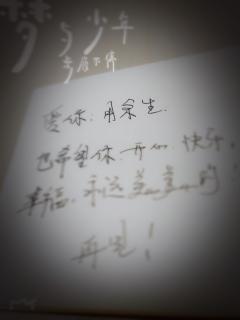 梦与少年
爱你，用余生.
也希望你.开心.快乐,
幸福，永远美美的!
再见!